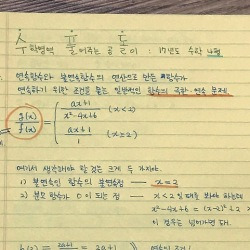 수학영역 풀어주는 공돌이 : 17년도 수학 4월
연속함수와 불연속함수의 연산으로 만든 함수가
연속하기 위한 조건을 묻는 일반적인 함수의 극한·연속 문제
g(x)/f(x) = { (ax+1)/(x²-4x+6) (x<2)
(ax+1)/1 (x≥2)
여기서 생각해야 할 것은 크게 두 가지야.
1) 불연속인 함수의 불연속점 — x=2
2) 분모 함수가 0이 되는 점 — x<2 일 때를 봐야 하는데
x²-4x+6 = (x-2)²+2
이 경우는 넘어가면 돼.
2a+1 = 2a+1